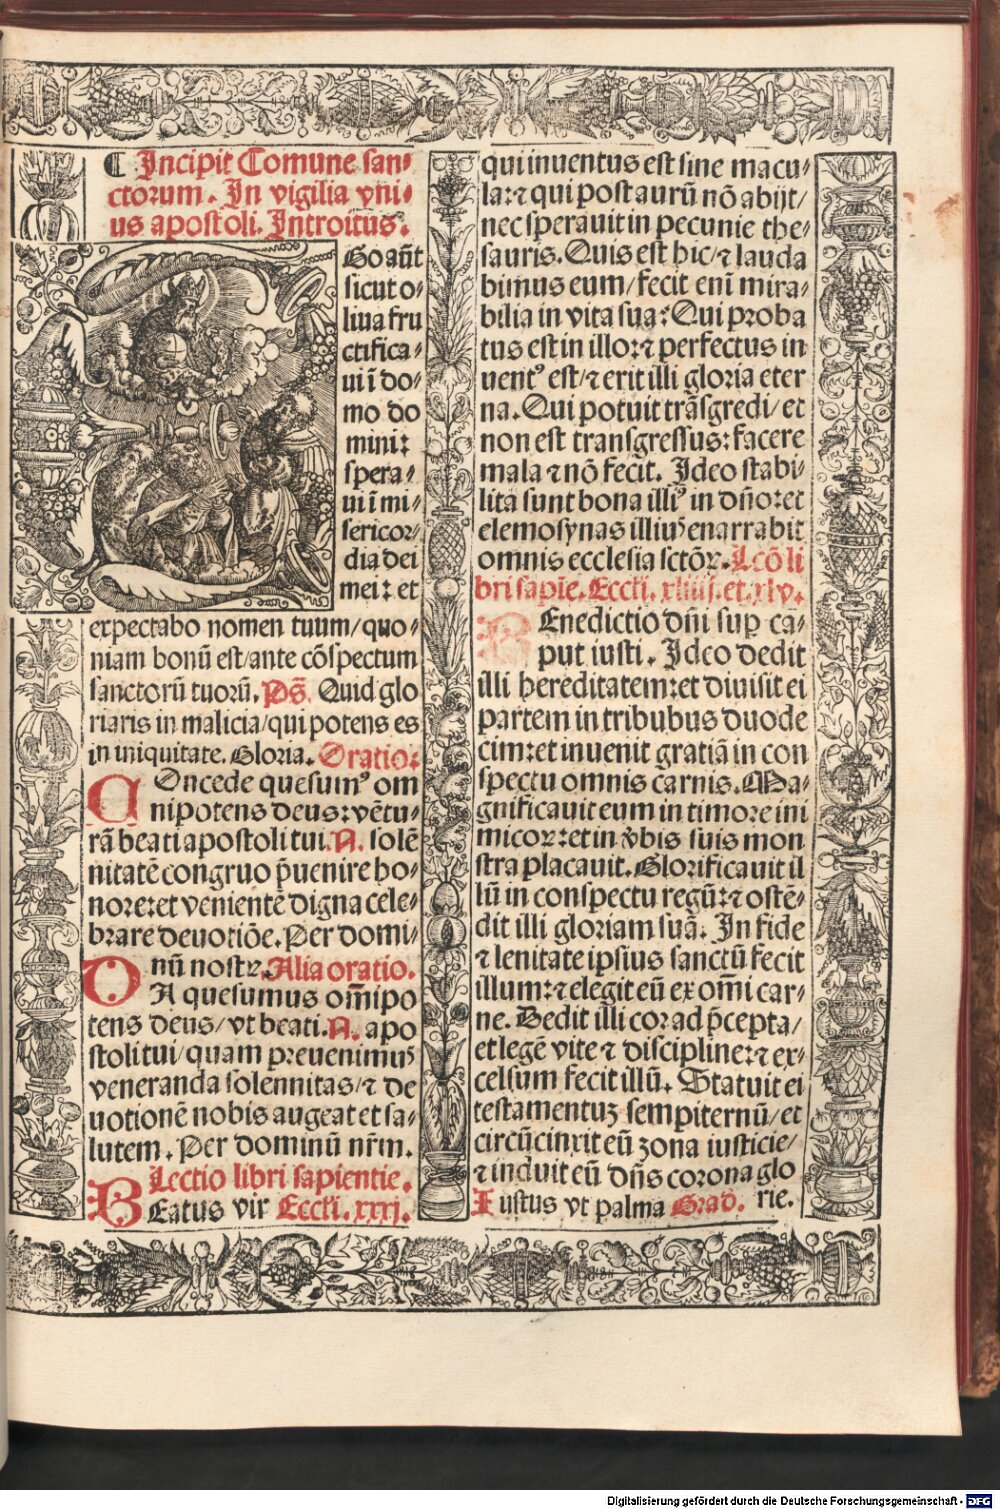 ¶ Incipit Comune san⸗
ctorum. In vigilia vni⸗
us apostoli. Introitus.
EGo aūt
sicut o⸗
liua fru
ctifica⸗
ui ī do⸗
mo do
mini:
spera⸗
ui ī mi⸗
sericor⸗
dia dei
mei: et
expectabo nomen tuum/quo⸗
niam bonū est/ante cōspectum
sanctorū tuorū. Ps̄. Quid glo
riaris in malicia/qui potens es
in iniquitate. Gloria. Oratio:
COncede quesumꝰ om
nipotens deus: vētu⸗
rā beati apostoli tui. N. solē
nitatē congruo p̄uenire ho⸗
nore: et venientē digna cele⸗
brare deuotiōe. Per domi⸗
nū nostꝝ. Alia oratio.
DA quesumus om̄ipo
tens deus/vt beati. N. apo
stoli tui/quam preuenimus
veneranda solennitas/⁊ de
uotionē nobis augeat et sa⸗
lutem. Per dominū nr̄m.
Lectio libri sapientie.
BEatus vir Eccli. xxxi.
qui inuentus est sine macu⸗
la: ⁊ qui post aurū nō abijt/
nec sperauit in pecunie the⸗
sauris. Quis est hic/⁊ lauda
bimus eum/fecit eni mira⸗
bilia in vita sua: Qui proba
tus est in illo: ⁊ perfectus in
uentꝰ est/⁊ erit illi gloria eter
na. Qui potuit trāsgredi/et
non est transgressus: facere
mala ⁊ nō fecit. Ideo stabi⸗
lita sunt bona illiꝰ in dn̄o: et
elemosynas illiꝰ enarrabit
omnis ecclesia sctōꝝ. Lcō li
bri sapīe. Eccli. xliiij. et. xlv.
BEnedictio dn̄i suꝑ ca⸗
put iusti. Ideo dedit
illi hereditatem: et diuisit ei
partem in tribubus duode
cim: et inuenit gratiā in con
spectu omnis carnis. Ma⸗
gnificauit eum in timore ini
micoꝝ: et in v̄bis suis mon
stra placauit. Glorificauit il
lū in conspectu regū: ⁊ ostē⸗
dit illi gloriam suā. In fide
⁊ lenitate ipsius sanctū fecit
illum: ⁊ elegit eū ex om̄i car⸗
ne. Dedit illi cor ad p̄cepta/
et legē vite ⁊ discipline: ⁊ ex⸗
celsum fecit illū. Statuit ei
testamentuꝫ sempiternū/et
circūcinxit eū zona iusticie/
⁊ induit eū dn̄s corona glo
rie.
Iustus vt palma Grad.
Digitalisierung gefördert durch die Deutsche Forschungsgemeinschaft - DFG